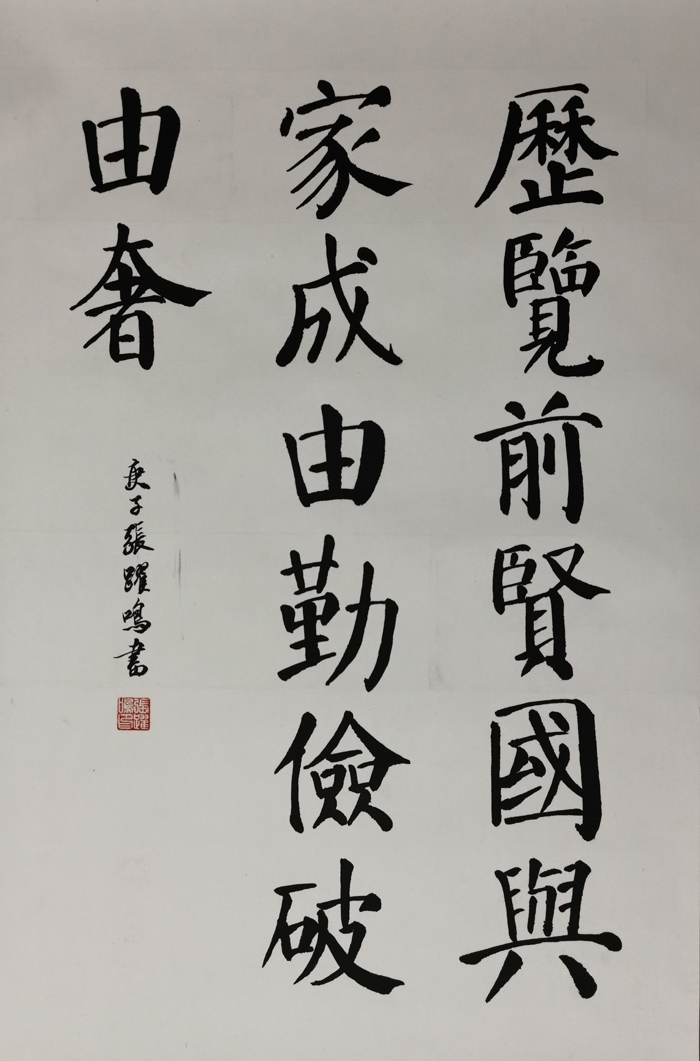 歷覽前賢國與
家成由勤儉破
由奢
庚子張躍鳴書
張躍鳴印